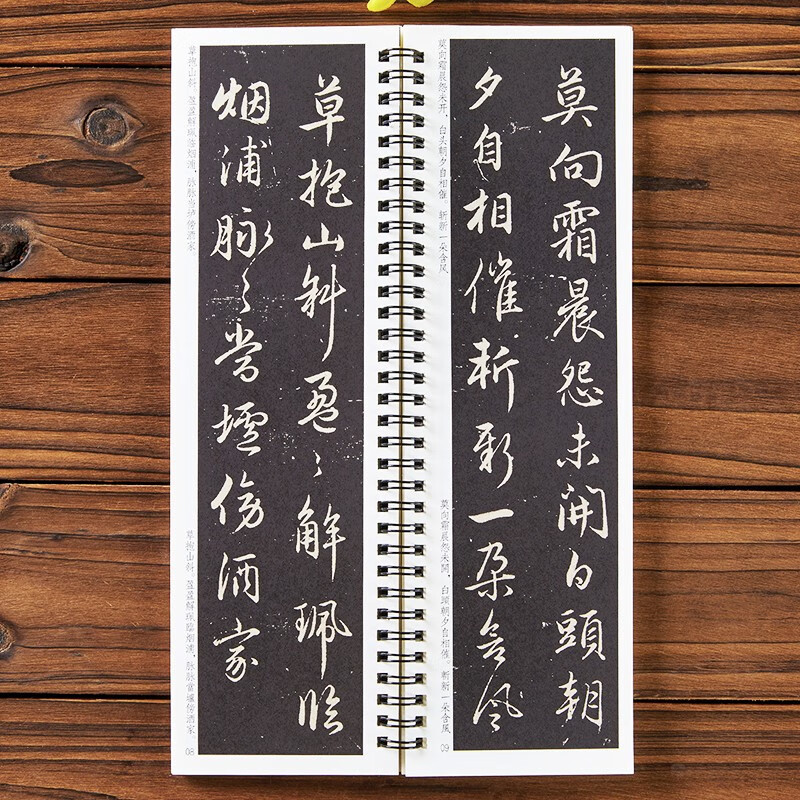 草抱山斜盈〻解珮臨
烟浦脉〻當壚傍酒家
草抱山斜。盈盈解珮临烟浦，脉脉当垆傍酒家。
草抱山斜。盈盈解珮臨烟浦，脉脉當壚傍酒家。
08
莫向霜晨怨未開白頭朝
夕自相催斬新一朵含風
莫向霜晨怨未开，白头朝夕自相催。斩新一朵含风
莫向霜晨怨未開，白頭朝夕自相催。斬新一朵含風
09